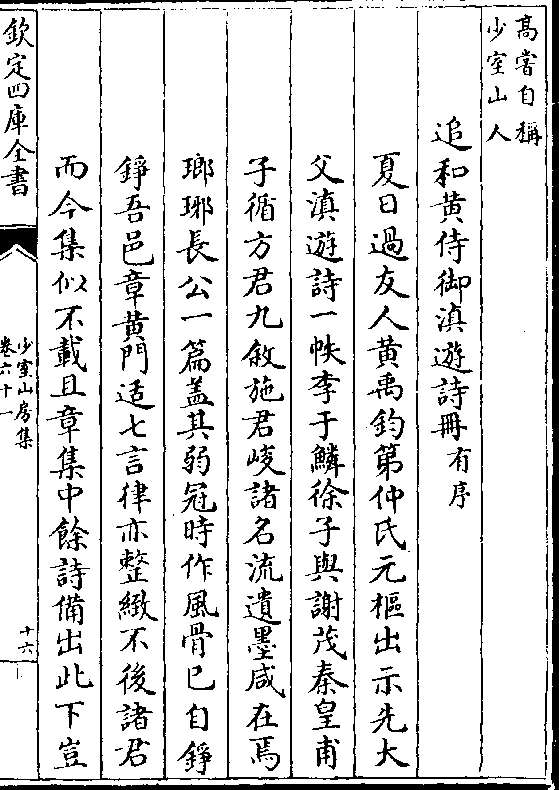 高嘗自稱
少室山人
追和黃侍御滇遊詩冊有序
夏日過友人黃禹鈞第仲氏元樞出示先大
父滇遊詩一帙李于鱗徐子與謝茂秦皇甫
子循方君九敘施君峻諸名流遺墨咸在焉
瑯琊長公一篇盖其弱冠時作風骨已自錚
錚吾邑章黃門适七言律亦整緻不後諸君
而今集似不載且章集中餘詩備出此下豈
欽定四庫全書
少室山房集
卷六十一
十六